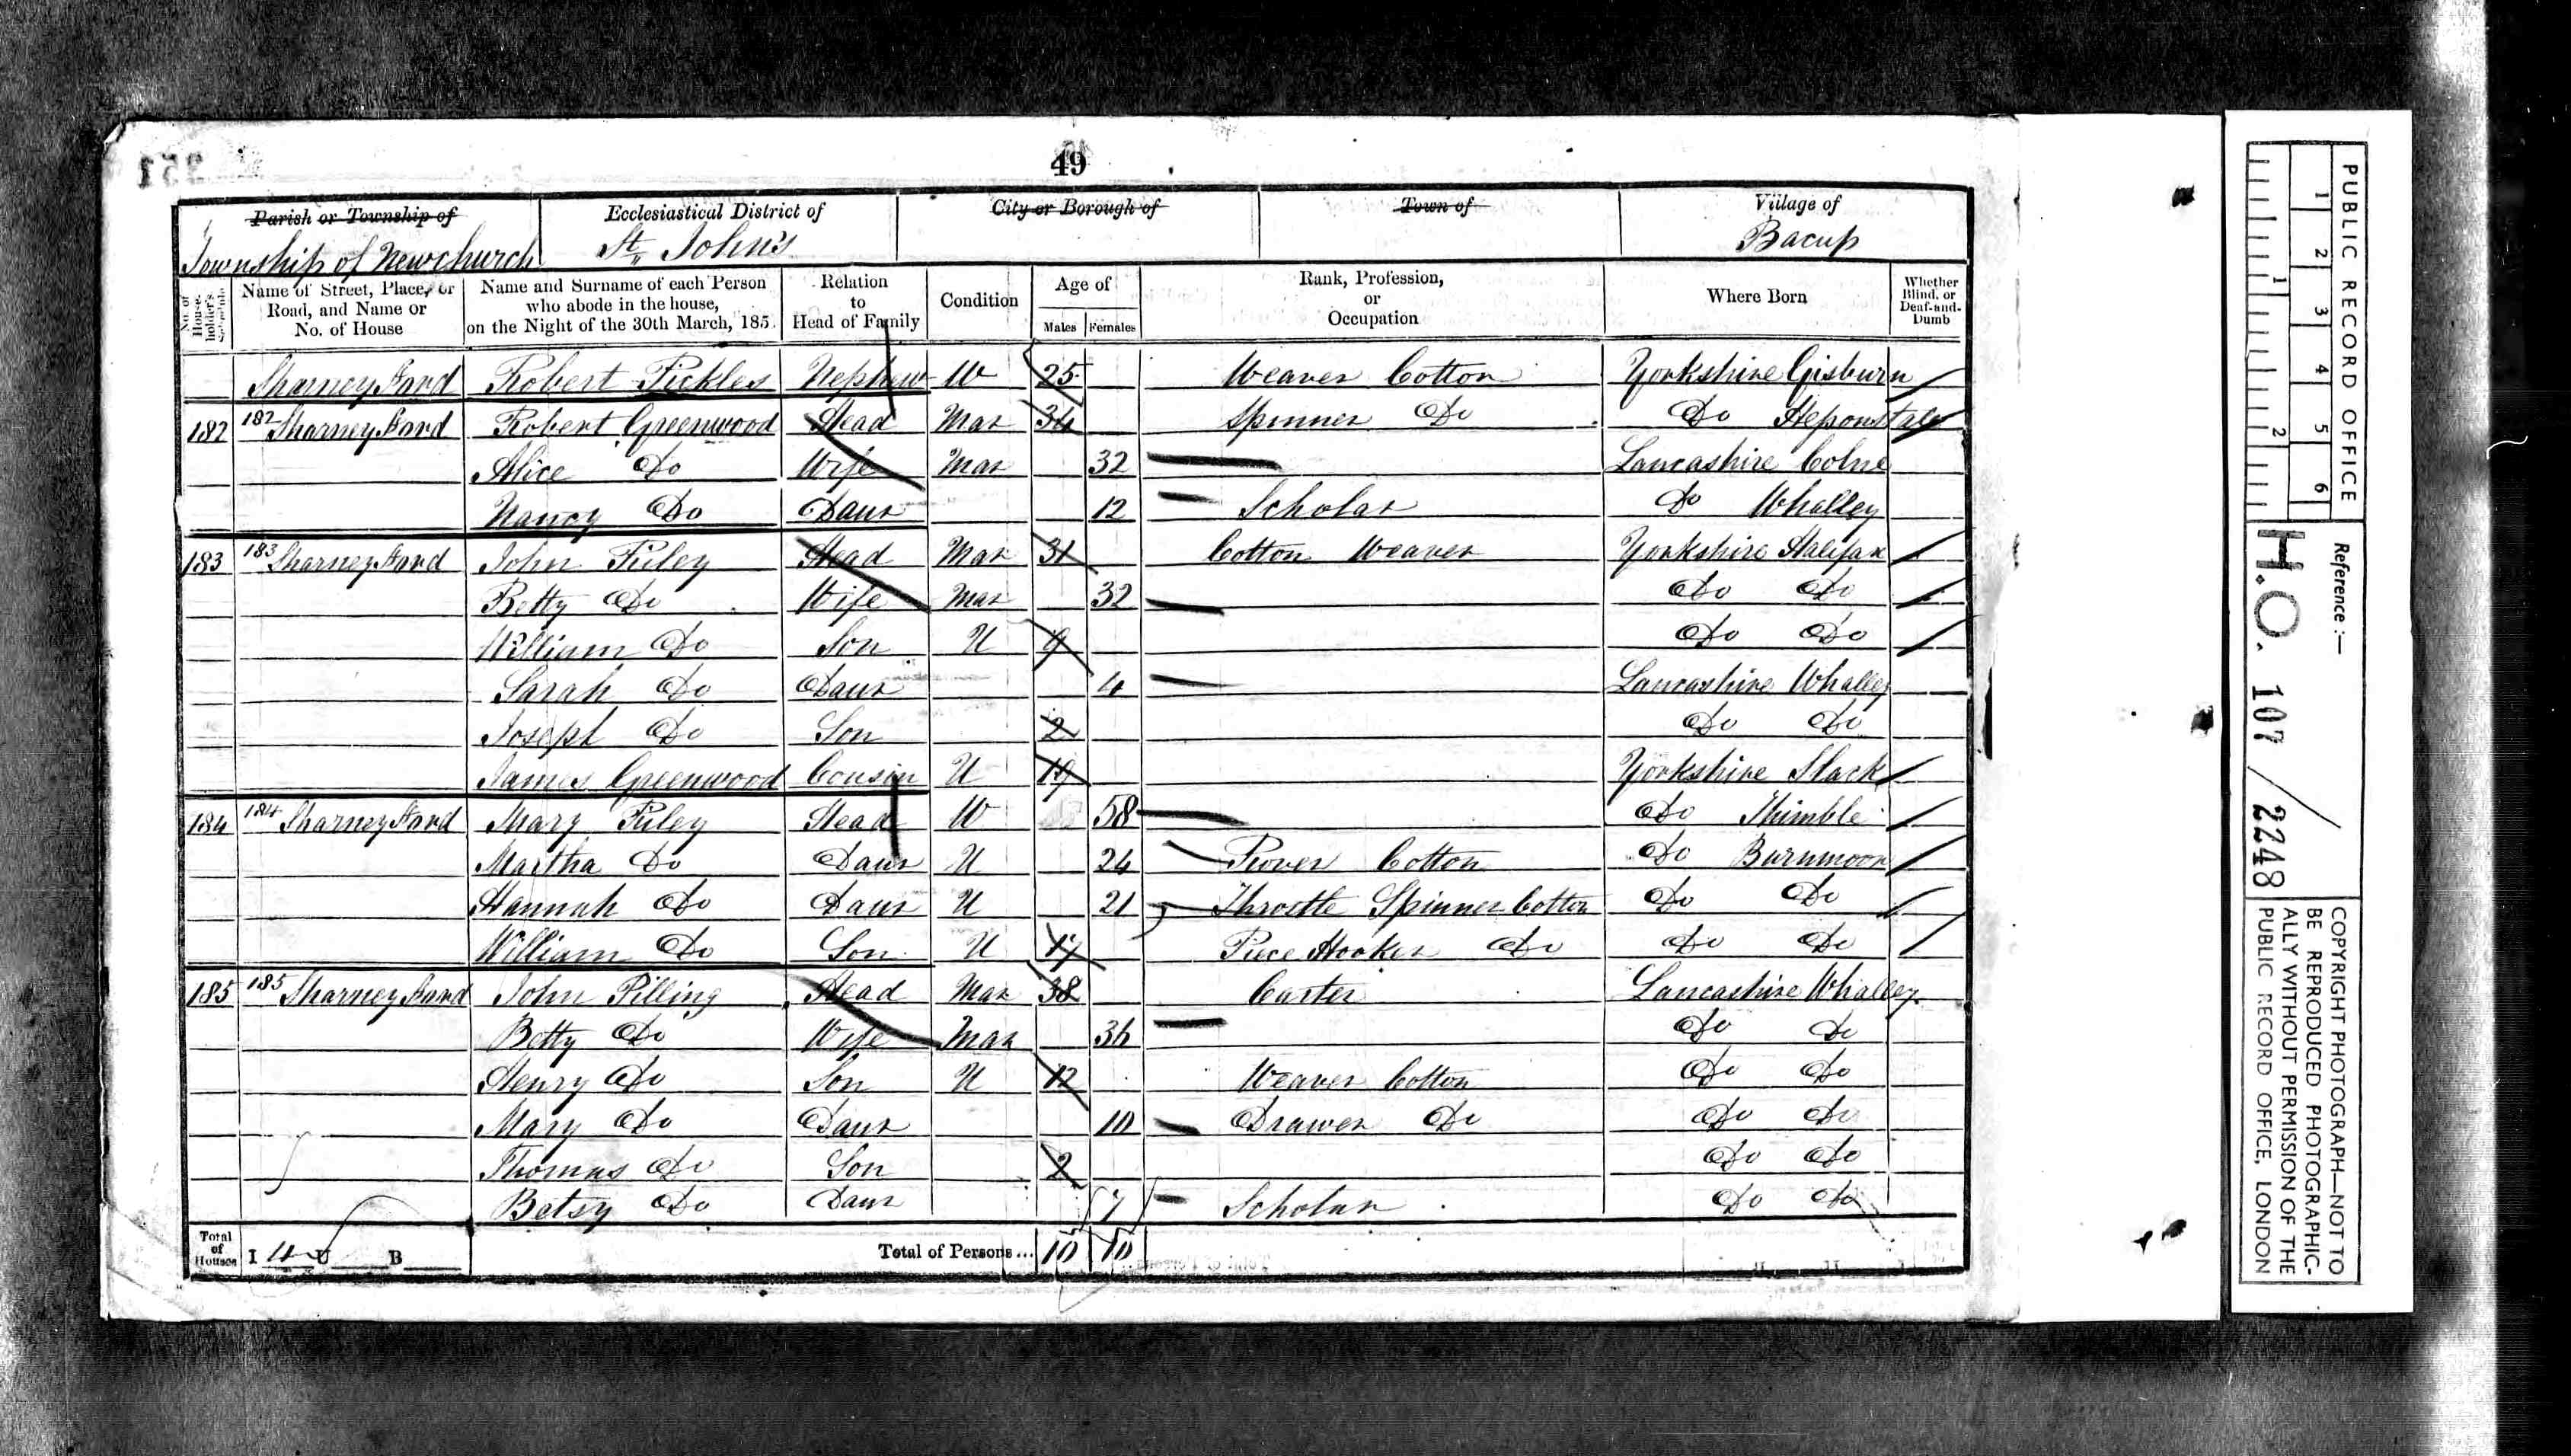 49
Parish or Township of
Township of Newchurch
Ecclesiastical District of
St. John's
City or Borough of
Town of
Village of
Bacup
No. of House-holder's Schedule
Name of Street, Place, or Road, and Name or No. of House
Name and Surname of each Person who abode in the house, on the Night of the 30th March, 185
Relation to Head of Family
Condition
Age of
Males Females
Rank, Profession, or Occupation
Where Born
Whether Blind, or Deaf-and-Dumb
Sharney Ford Robert Pickles Nephew W 25 Weaver Cotton Yorkshire Gisburn
182 182 Sharney Ford Robert Greenwood Head Mar 34 Spinner Do Do Heponstale
Alice Do Wife Mar 32 Lancashire Colne
Nancy Do Daur 12 Scholar Do Whalley
183 183 Sharney Ford John Do Head Mar 31 Cotton Weaver Yorkshire Halifax
Betty Do Wife Mar 32 Do Do
William Do Son U 9 Do Do
Sarah Do Daur 4 Lancashire Whalley
Joseph Do Son 2 Do Do
James Greenwood Cousin U 19 Yorkshire Slack
184 184 Sharney Ford Mary Head W 58 Do Thimble
Martha Do Daur U 24 Cotton Do Burnmoor
Hannah Do Daur U 21 Throstle Spinner Cotton Do Do
William Do Son U 17 Piece Hooker Do Do Do
185 185 Sharney Ford John Pilling Head Mar 38 Carter Lancashire Whalley
Betty Do Wife Mar 36 Do Do
Henry Do Son U 12 Weaver Cotton Do Do
Mary Do Daur 10 Drawer Do Do Do
Thomas Do Son 2 Do Do
Betsy Do Daur 7 Scholar Do Do
Total of Houses I 4 U B Total of Persons... 10 10
PUBLIC RECORD OFFICE
1 2 3 4 5 6
1 2
Reference:—
H.O. 107 / 2248
COPYRIGHT PHOTOGRAPH—NOT TO
BE REPRODUCED PHOTOGRAPHIC-
ALLY WITHOUT PERMISSION OF THE
PUBLIC RECORD OFFICE, LONDON